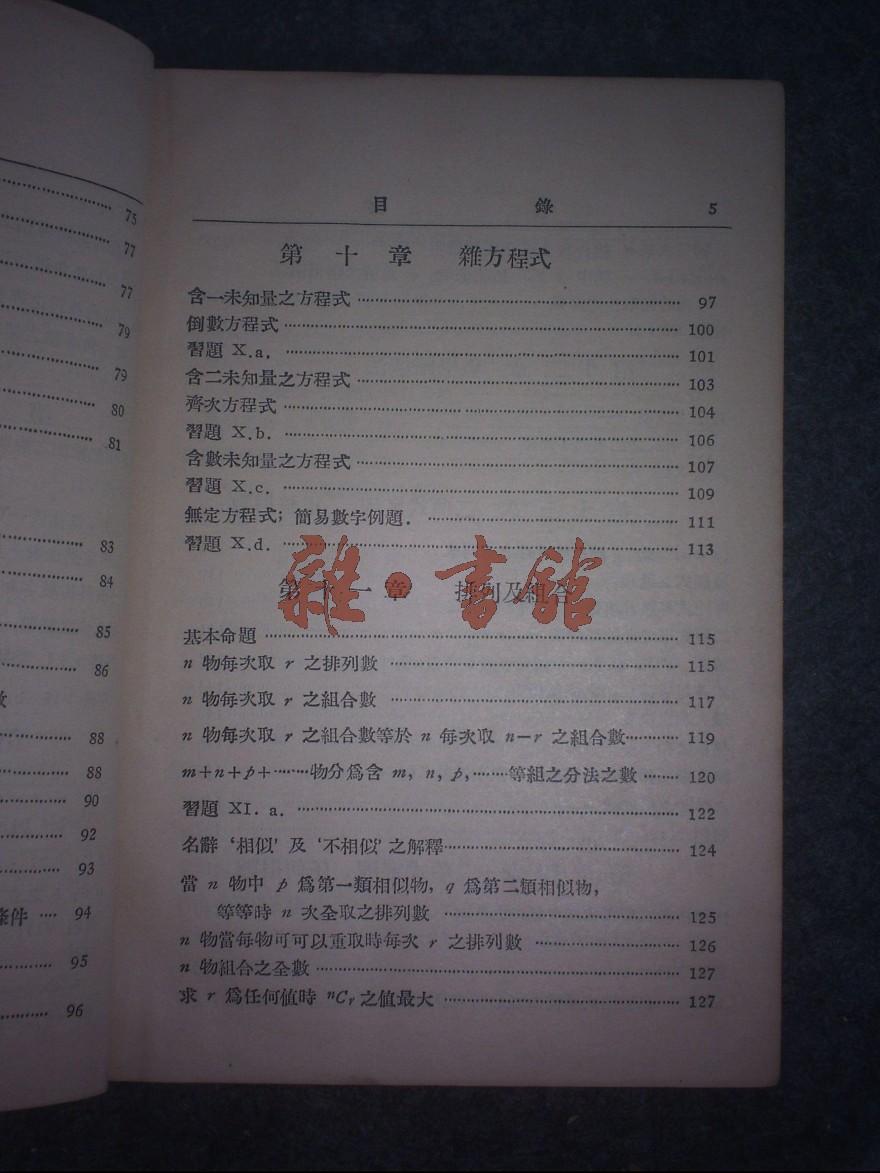 75
77
77
79
79
80
81
83
84
85
86
88
88
90
92
93
條件 ···· 94
95
96
目 錄 5
第十章 雜方程式
含一未知量之方程式 ···· 97
倒數方程式 ···· 100
習題 X.a. ···· 101
含二未知量之方程式 ···· 103
齊次方程式 ···· 104
習題 X.b. ···· 106
含數未知量之方程式 ···· 107
習題 X.c. ···· 109
無定方程式; 簡易數字例題. ···· 111
習題 X.d. ···· 113
第十一章 排列及組合
雜·書館
基本命題 ···· 115
n 物每次取 r 之排列數 ···· 115
n 物每次取 r 之組合數 ···· 117
n 物每次取 r 之組合數等於 n 每次取 n-r 之組合數 ···· 119
m+n+p+······物分爲含 m, n, p,······等組之分法之數 ···· 120
習題 XI. a. ···· 122
名辭 ‘相似’ 及 ‘不相似’ 之解釋 ···· 124
當 n 物中 p 爲第一類相似物, q 爲第二類相似物,
等等時 n 次全取之排列數 ···· 125
n 物當每物可可以重取時每次 r 之排列數 ···· 126
n 物組合之全數 ···· 127
求 r 爲任何值時 ⁿCᵣ 之值最大 ···· 127